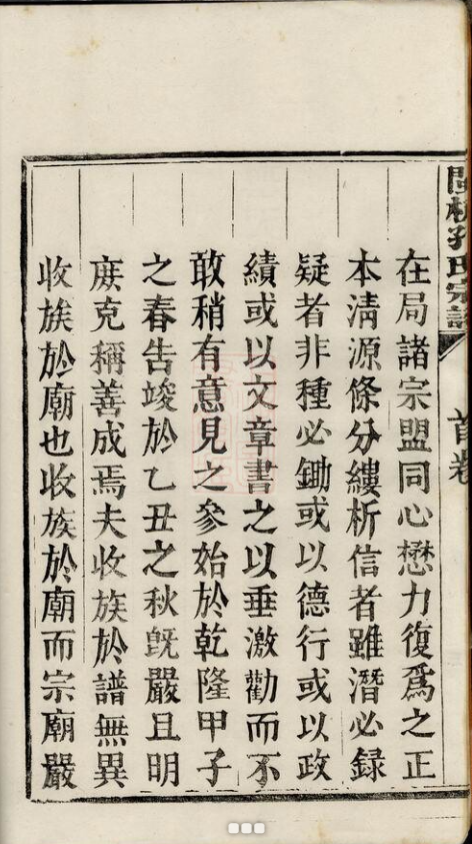 孔氏宗譜
首卷
在局諸宗盟同心懋力復爲之正
本清源條分縷析信者雖潛必録
疑者非種必鋤或以德行或以政
績或以文章書之以垂激勸而不
敢稍有意見之參始於乾隆甲子
之春告竣於乙丑之秋旣嚴且明
庶克稱善成焉夫收族於譜無異
收族於廟也收族於廟而宗廟嚴